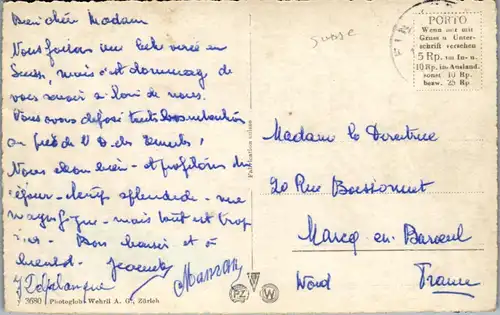 Bien chère Madame
Nous faisons une belle
Suisse, mais c'est dommage de
vous savoir si loin de nous.
Nous avons déposé toutes
au pied de N D des Ermites!
Nous allons bien - et profitons du
séjour - temps splendide - vue
magnifique - mais tout est trop
Bons baisers et à
bientôt.
3690 Photoglob-Wehrli A. G., Zürich
Fabrication suisse
PZ W
Suisse
PORTO
Wenn nur mit
Gruss u Unter-
schrift versehen
5 Rp. im In- u.
10 Rp. im Ausland.
sonst 10 Rp.
bezw. 25 Rp.
Madame la Directrice
20 Rue
Marcq en Baroeul
Nord France